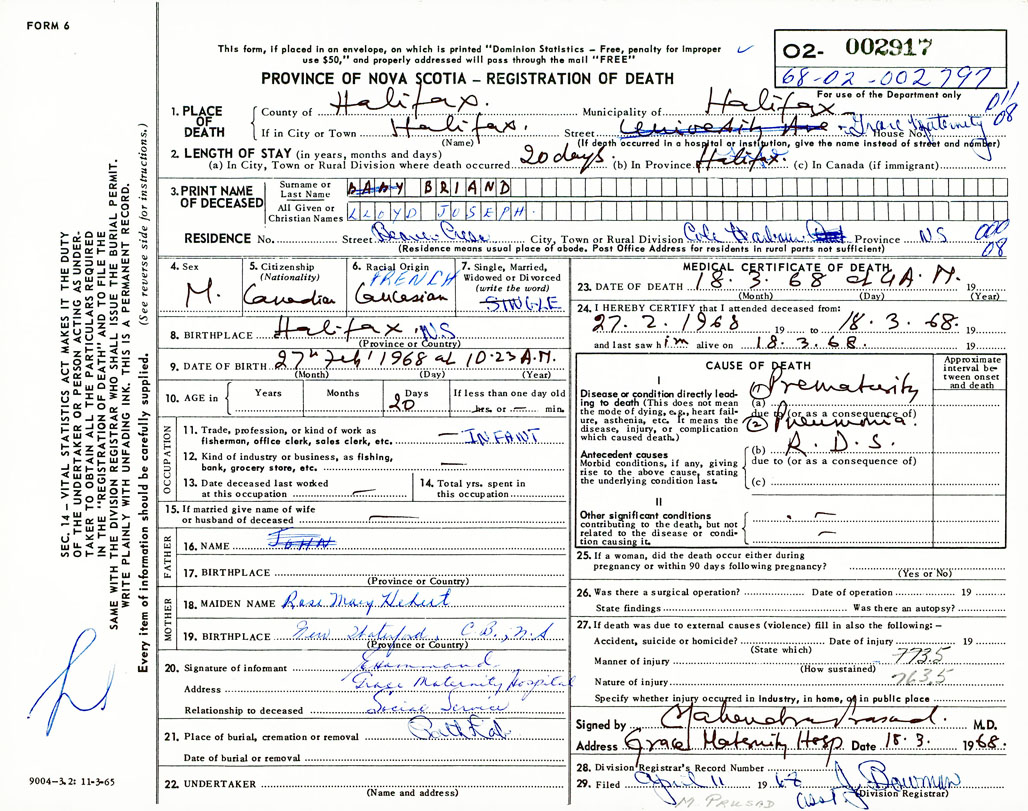 FORM 6
This form, if placed in an envelope, on which is printed "Dominion Statistics – Free, penalty for improper
use $50," and properly addressed will pass through the mail "FREE"
PROVINCE OF NOVA SCOTIA – REGISTRATION OF DEATH
O2- 002917
68-02-002797
For use of the Department only
011
08
SEC. 14 – VITAL STATISTICS ACT MAKES IT THE DUTY
OF THE UNDERTAKER OR PERSON ACTING AS UNDER-
TAKER TO OBTAIN ALL THE PARTICULARS REQUIRED
IN THE "REGISTRATION OF DEATH" AND TO FILE THE
SAME WITH THE DIVISION REGISTRAR WHO SHALL ISSUE THE BURIAL PERMIT.
WRITE PLAINLY WITH UNFADING INK. THIS IS A PERMANENT RECORD.
Every item of information should be carefully supplied. (See reverse side for instructions.)
1. PLACE OF DEATH
County of Halifax. Municipality of Halifax
If in City or Town Halifax. Street University Ave Grace Maternity House No.
(Name) (If death occurred in a hospital or institution, give name instead of street and number)
2. LENGTH OF STAY (in years, months and days)
(a) In City, Town or Rural Division where death occurred 20 days. (b) In Province Halifax. (c) In Canada (if immigrant)
3. PRINT NAME OF DECEASED
Surname or Last Name BABY BRIAND
All Given or Christian Names LLOYD JOSEPH.
RESIDENCE No. Street City, Town or Rural Division Cole Harbour Province NS
000
08
(Residence means usual place of abode. Post Office Address for residents in rural parts not sufficient)
4. Sex M.
5. Citizenship (Nationality) Canadian
6. Racial Origin FRENCH Caucasian
7. Single, Married, Widowed or Divorced (write the word) SINGLE
8. BIRTHPLACE Halifax N.S
(Province or Country)
9. DATE OF BIRTH 27th Feb' 1968 at 10.23 A.M.
(Month) (Day) (Year)
10. AGE in Years Months Days 20 If less than one day old hrs. or min.
OCCUPATION
11. Trade, profession, or kind of work as
fisherman, office clerk, sales clerk, etc. – INFANT
12. Kind of industry or business, as fishing,
bank, grocery store, etc. —
13. Date deceased last worked
at this occupation —
14. Total yrs. spent in
this occupation
15. If married give name of wife
or husband of deceased —
FATHER
16. NAME JOHN
17. BIRTHPLACE
(Province or Country)
MOTHER
18. MAIDEN NAME Rose Mary Hebert
19. BIRTHPLACE New Waterford, C.B., N.S
(Province or Country)
20. Signature of informant E Hammond
Address Grace Maternity Hospital
Relationship to deceased Social Service
21. Place of burial, cremation or removal Path Lab
Date of burial or removal
22. UNDERTAKER
(Name and address)
9004-3.2: 11-3-65
MEDICAL CERTIFICATE OF DEATH
23. DATE OF DEATH 18. 3. 68 at 9 A. M. 19
(Month) (Day) (Year)
24. I HEREBY CERTIFY that I attended deceased from:
27. 2. 1968 19 to 18. 3. 68. 19
and last saw him alive on 18. 3. 68. 19
CAUSE OF DEATH
Approximate interval between onset and death
I
Disease or condition directly leading to death (This does not mean the mode of dying, e.g., heart failure, asthenia, etc. It means the disease, injury, or complication which caused death.)
(a) (1) Prematurity
due to (or as a consequence of)
(2) Pneumonia.
Antecedent causes
Morbid conditions, if any, giving rise to the above cause, stating the underlying condition last.
(b) R. D. S.
due to (or as a consequence of)
(c)
II
Other significant conditions
contributing to the death, but not related to the disease or condition causing it.
25. If a woman, did the death occur either during
pregnancy or within 90 days following pregnancy?
(Yes or No)
26. Was there a surgical operation? Date of operation 19
State findings Was there an autopsy?
27. If death was due to external causes (violence) fill in also the following: –
Accident, suicide or homicide? Date of injury 19
(State which)
Manner of injury 773.5
(How sustained)
Nature of injury 763.5
Specify whether injury occurred in Industry, in home, or in public place
Signed by Mahendra Prasad. M.D.
Address Grace Maternity Hosp Date 18. 3. 1968.
28. Division Registrar's Record Number
29. Filed April 11 1968 J. Bowman
Asst (Division Registrar)
M PRASAD